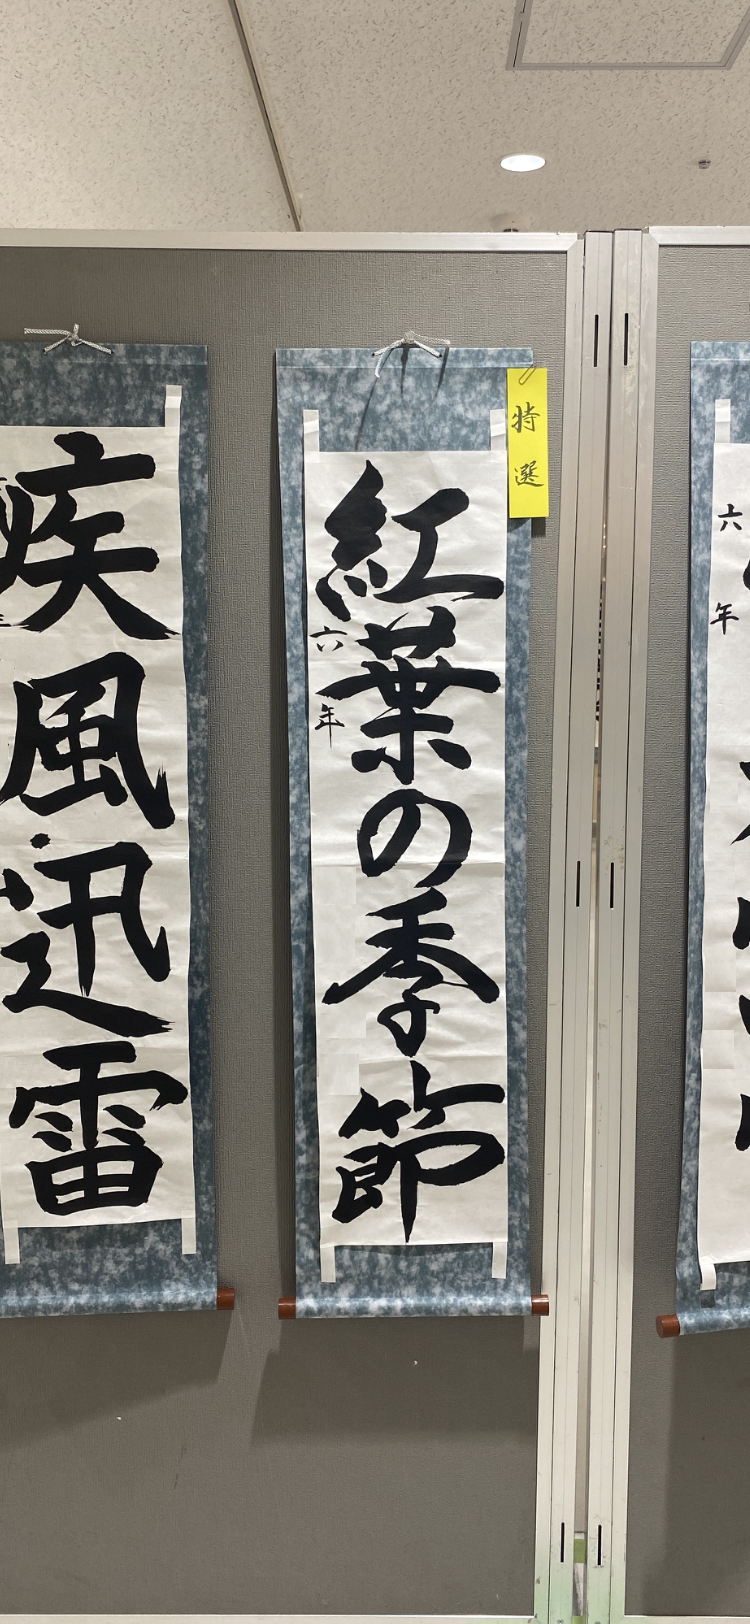 六年
特選
紅葉の季節
六年
疾風迅雷